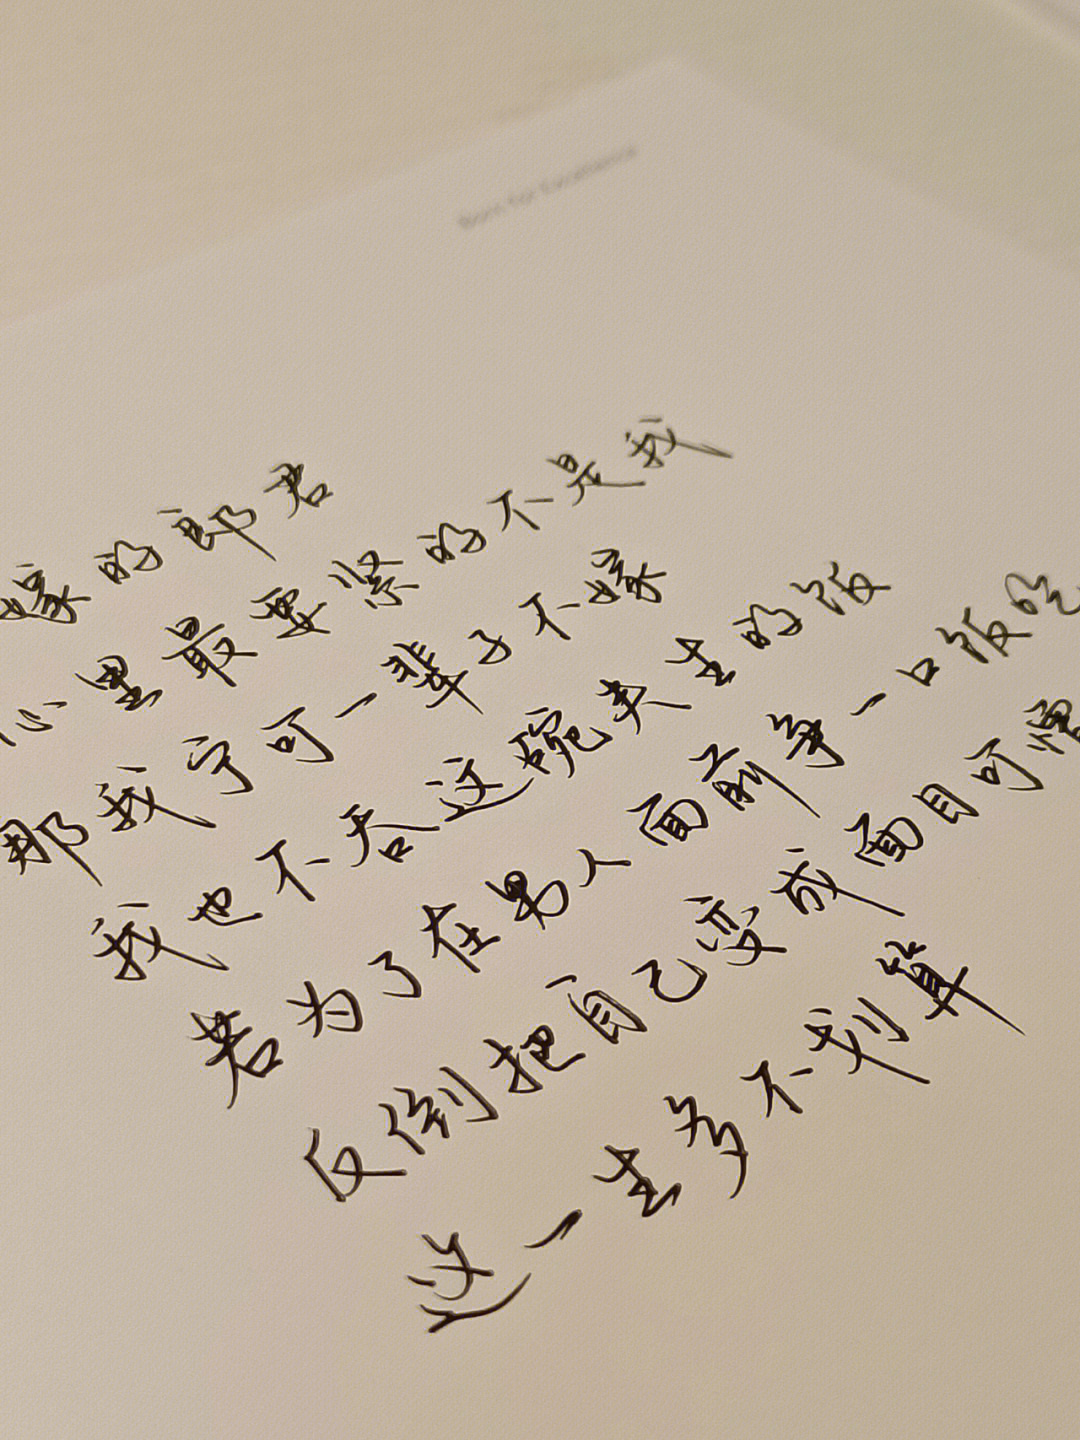 Born for Excellence
嫁的郎君
心里最要紧的不是我
那我宁可一辈子不嫁
我也不吞这碗夹生的饭
若为了在男人面前争一口饭吃
反倒把自己变成面目可憎
这一生多不划算